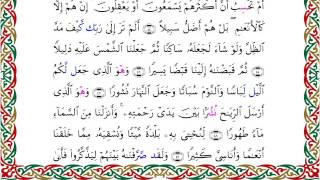 أَمْ تَحْسِبُ أَنَّ أَكْثَرَهُمْ يَسْمَعُونَ أَوْ يَعْقِلُونَ ۚ إِنْ هُمْ إِلَّا
كَالْأَنْعَٰمِ ۖ بَلْ هُمْ أَضَلُّ سَبِيلًا ۝ أَلَمْ تَرَ إِلَىٰ رَبِّكَ كَيْفَ مَدَّ
الظِّلَّ وَلَوْ شَاءَ لَجَعَلَهُ سَاكِنًا ثُمَّ جَعَلْنَا الشَّمْسَ عَلَيْهِ دَلِيلًا
۝ ثُمَّ قَبَضْنَٰهُ إِلَيْنَا قَبْضًا يَسِيرًا ۝ وَهْوَ الَّذِي جَعَلَ لَكُمُ
اللَّيْلَ لِبَاسًا وَالنَّوْمَ سُبَاتًا وَجَعَلَ النَّهَارَ نُشُورًا ۝ وَهْوَ الَّذِي
أَرْسَلَ الرِّيَٰحَ نُشُرًا بَيْنَ يَدَيْ رَحْمَتِهِ ۚ وَأَنْزَلْنَا مِنَ السَّمَاءِ
مَاءً طَهُورًا ۝ لِنُحْيِيَ بِهِ بَلْدَةً مَيْتًا وَنُسْقِيَهُ مِمَّا خَلَقْنَا
أَنْعَٰمًا وَأَنَاسِيَّ كَثِيرًا ۝ وَلَقَدْ صَرَّفْنَٰهُ بَيْنَهُمْ لِيَذَّكَّرُوا فَأَبَىٰ